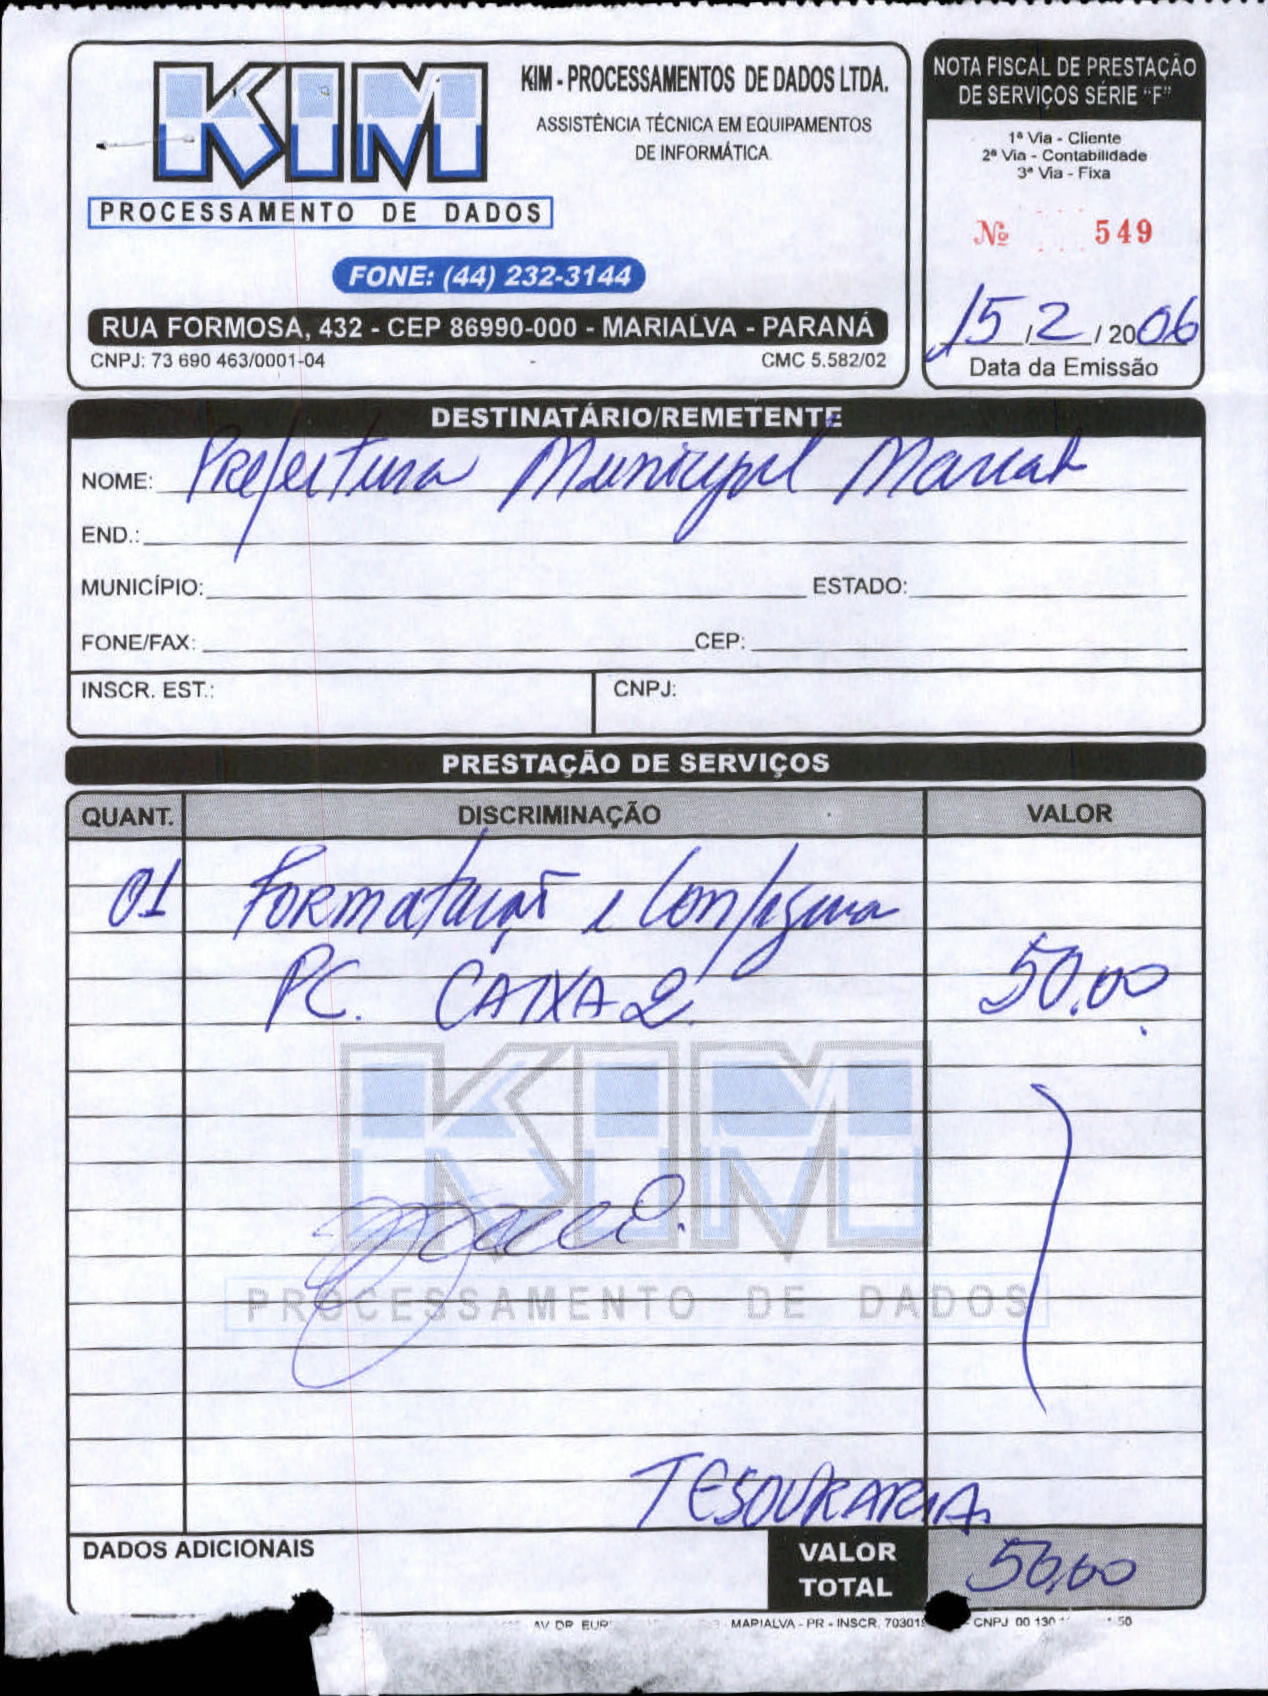 KIM
PROCESSAMENTO DE DADOS
KIM - PROCESSAMENTOS DE DADOS LTDA.
ASSISTÊNCIA TÉCNICA EM EQUIPAMENTOS
DE INFORMÁTICA
FONE: (44) 232-3144
RUA FORMOSA, 432 - CEP 86990-000 - MARIALVA - PARANÁ
CNPJ: 73 690 463/0001-04 CMC 5.582/02
NOTA FISCAL DE PRESTAÇÃO
DE SERVIÇOS SÉRIE "F"
1ª Via - Cliente
2ª Via - Contabilidade
3ª Via - Fixa
Nº 549
15/2/2006
Data da Emissão
DESTINATÁRIO/REMETENTE
NOME: Prefeitura Municipal
END.:
MUNICÍPIO: ESTADO:
FONE/FAX: CEP:
INSCR. EST.: CNPJ:
PRESTAÇÃO DE SERVIÇOS
QUANT. DISCRIMINAÇÃO VALOR
01 Formatação e Configura
PC. CAIXA 2 50,00
KIM
PROCESSAMENTO DE DADOS
TESOURARIA
DADOS ADICIONAIS VALOR TOTAL 50,00
AV DR EUR MARIALVA - PR - INSCR. CNPJ 00 130